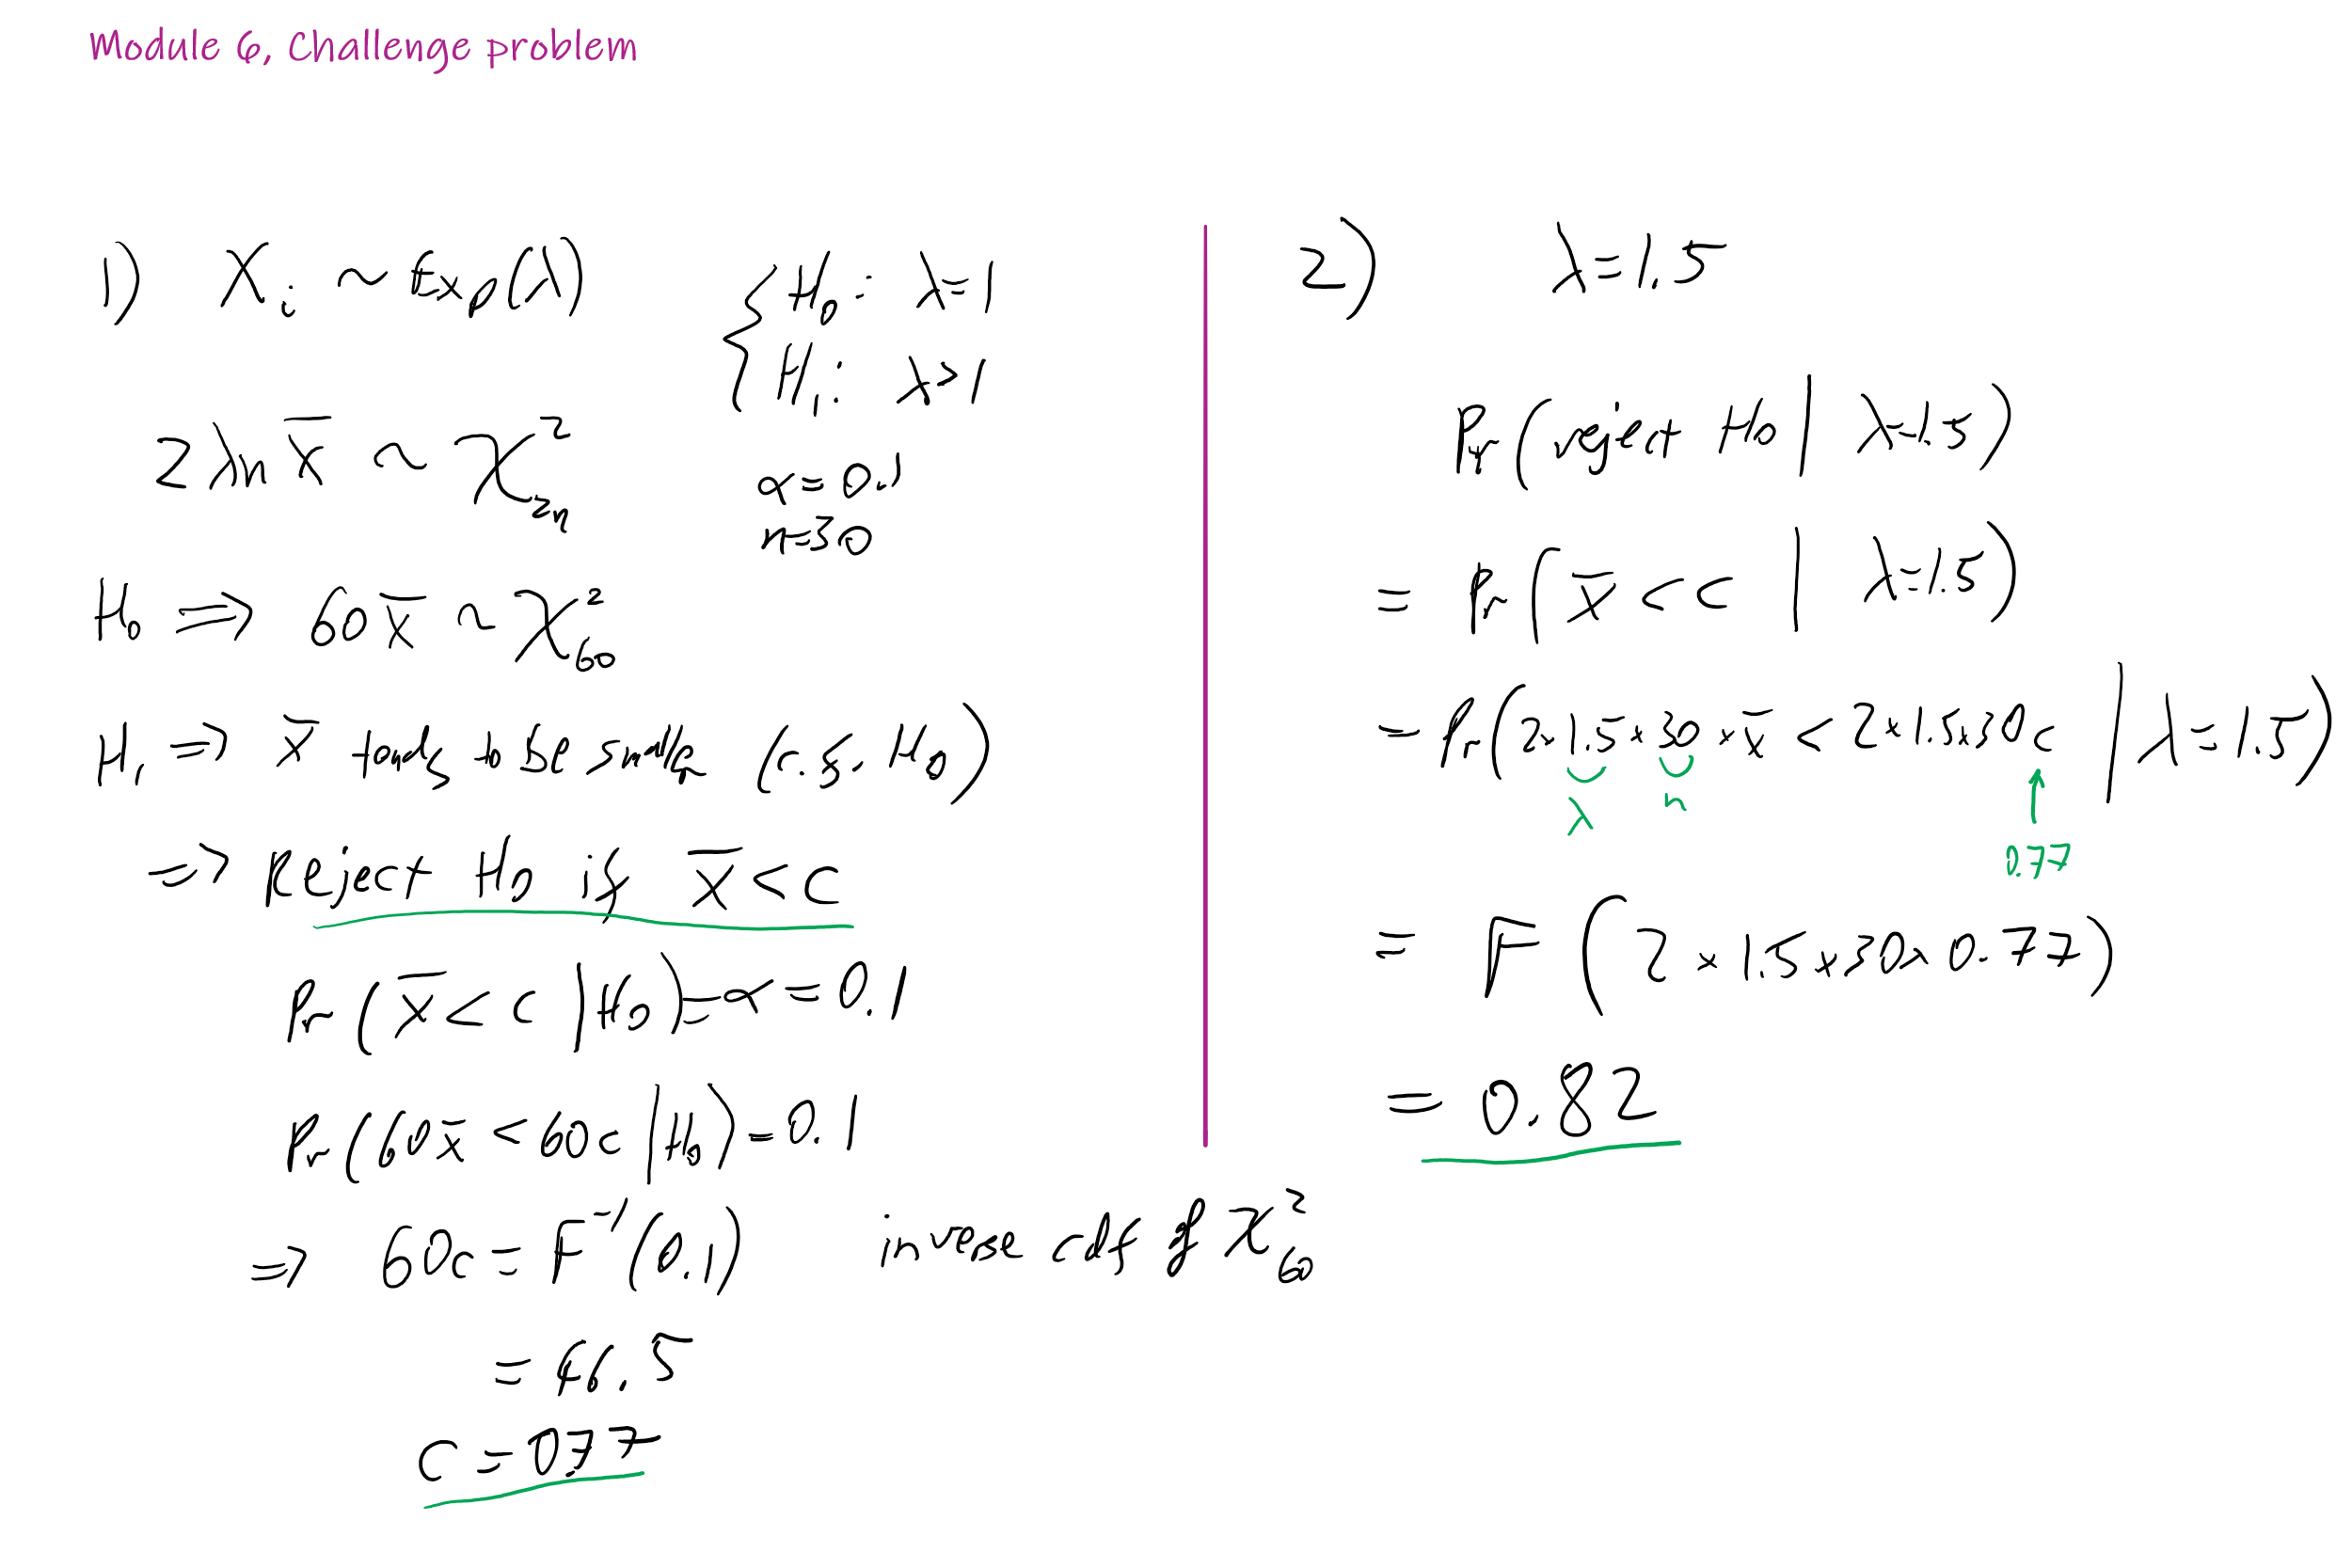 Module 6, Challenge problem
1) Xᵢ ~ Exp(λ)
{ H₀: λ=1
H₁: λ>1
2λnX̄ ~ χ²₂ₙ
α=0.1
n=30
H₀ ⟹ 60X̄ ~ χ²₆₀
H₁ ⟹ X̄ tends to be smaller (r.t. H₀)
⟹ Reject H₀ if X̄<c
Pr(X̄<c | H₀)=α=0.1
Pr(60X̄<60c | H₀)=0.1
⟹ 60c=F⁻¹(0.1) inverse cdf of χ²₆₀
= 46.5
c=0.77
2) λ=1.5
Pr(reject H₀ | λ=1.5)
= Pr(X̄<c | λ=1.5)
= Pr(2×1.5×30×X̄ < 2×1.5×30c | λ=1.5)
λ n
0.77
= F(2×1.5×30×0.77)
= 0.82